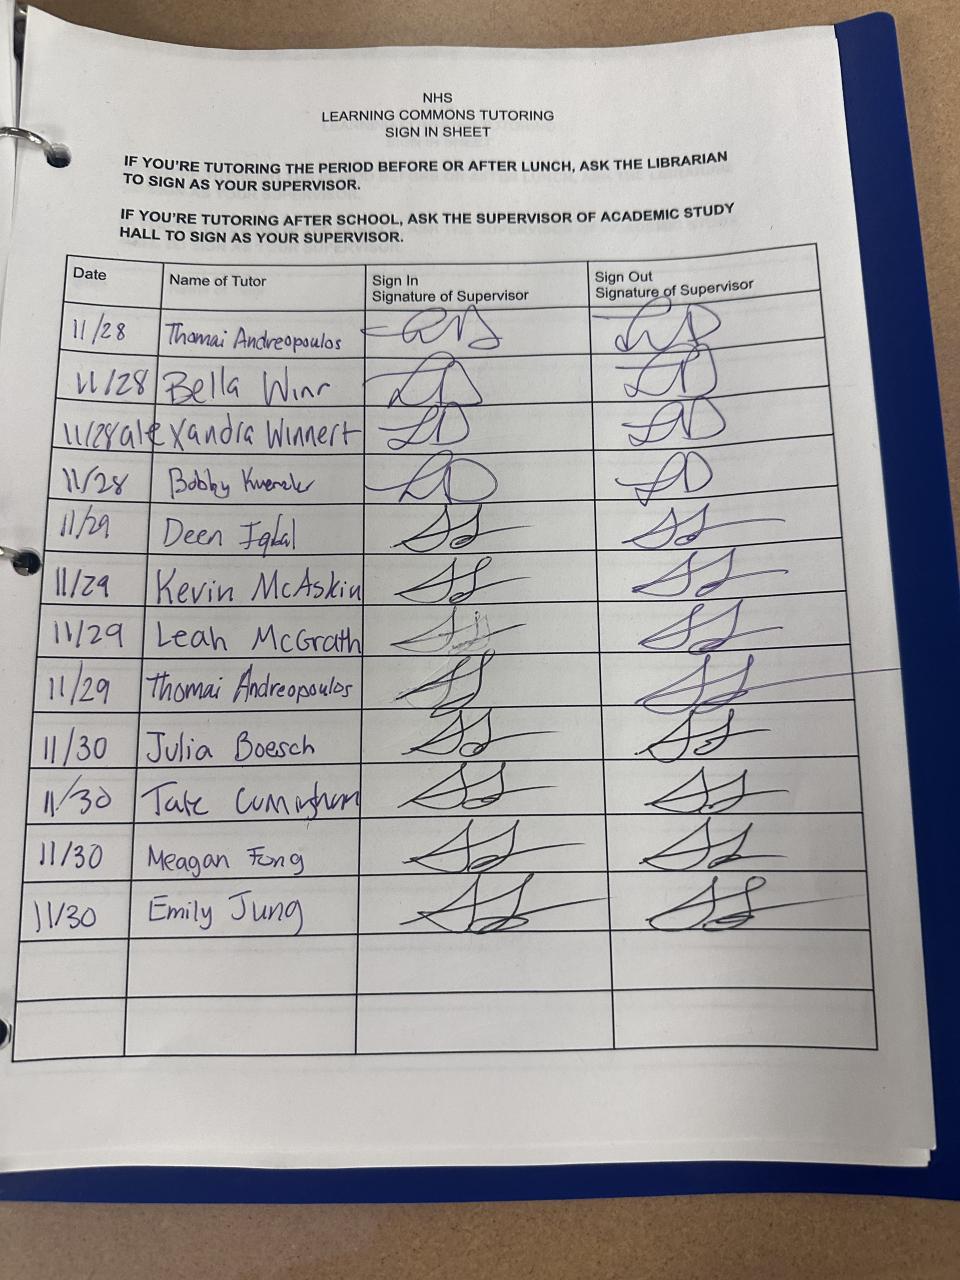 NHS
LEARNING COMMONS TUTORING
SIGN IN SHEET
IF YOU'RE TUTORING THE PERIOD BEFORE OR AFTER LUNCH, ASK THE LIBRARIAN
TO SIGN AS YOUR SUPERVISOR.
IF YOU'RE TUTORING AFTER SCHOOL, ASK THE SUPERVISOR OF ACADEMIC STUDY
HALL TO SIGN AS YOUR SUPERVISOR.
Date Name of Tutor Sign In Sign Out
Signature of Supervisor Signature of Supervisor
11/28 Thomai Andreopoulos
11/28 Bella Winr
11/28 alexandra Winnert
11/28 Bobby
11/29 Deen Iqbal
11/29 Kevin McAskin
11/29 Leah McGrath
11/29 Thomai Andreopoulos
11/30 Julia Boesch
11/30 Tate
11/30 Meagan Fong
11/30 Emily Jung